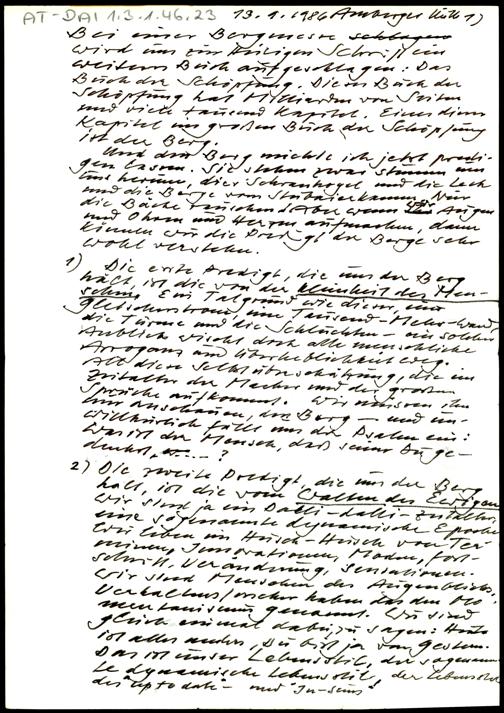 AT-DAI 1.3.1.46.23 13.9.1986 Amberger Hütte 1)
Bei einer Bergmesse schlagen
wird uns zur Heiligen Schrift ein
weiteres Buch aufgeschlagen: Das
Buch der Schöpfung. Dieses Buch der
Schöpfung hat Milliarden von Seiten
und viele tausend Kapitel. Eines dieser
Kapitel im großen Buch der Schöpfung
ist der Berg.
Und den Berg möchte ich jetzt predi-
gen lassen. Sie stehen zwar stumm um
uns herum, die Schrankogel und die
und die Berge vom Stubaierkamm. Nur
die Bäche rauschen. Aber wenn wir Augen
und Ohren und Herzen aufmachen, dann
können wir die Predigt der Berge sehr
wohl verstehen.
1) Die erste Predigt, die uns der Berg
hält, ist die von der Kleinheit des Men-
schen. Ein Talgrund wie dieser, ein
Gletscherstrom, eine Tausend-Meter-Wand
die Türme und die Schluchten - ein solcher
Anblick wischt doch alle menschliche
Arroganz und Überheblichkeit weg.
All diese Selbstüberschätzung, die im
Zeitalter der Macher und der großen
Sprüche aufkommt. Wir müssen ihn
nur anschauen, den Berg - und un-
willkürlich fällt uns der Psalm ein:
Was ist der Mensch, daß seiner Du ge-
denkst, ...?
2) Die zweite Predigt, die uns der Berg
hält, ist die vom Walten des Ewigen
Wir sind ja ein Dalli-dalli-Zeitalter,
eine sogenannte dynamische Epoche
Wir leben im Husch-Husch von Ter-
minen, Innovationen, Moden, Fort-
schritt, Veränderung, Sensationen.
Wir sind Menschen des Augenblicks.
Verhaltensforscher haben das den Mo-
mentanismus genannt. Wir sind
gleich einmal dabei, zu sagen: Heute
ist alles anders, Du bist ja von gestern.
Das ist unser Lebensstil, der sogenann-
te dynamische Lebensstil, der Lebensstil
des "up to date" - und "In-seins"